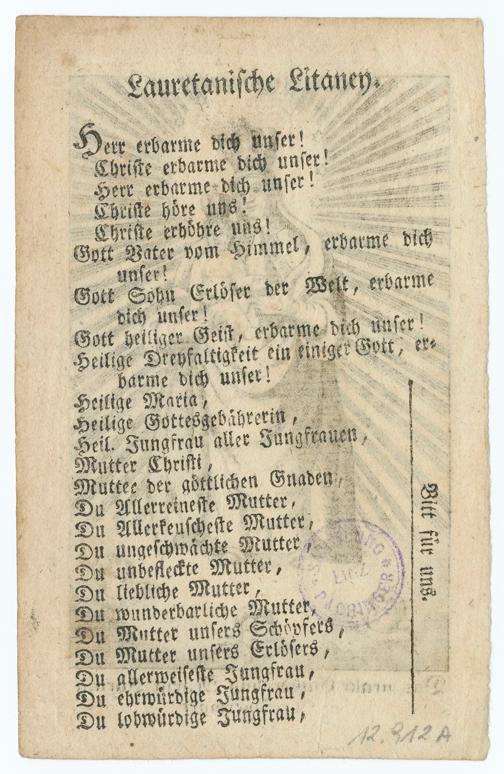 Lauretanische Litaney.
Herr erbarme dich unser!
Christe erbarme dich unser!
Herr erbarme dich unser!
Christe höre uns!
Christe erhöhre uns!
Gott Vater vom Himmel, erbarme dich
unser!
Gott Sohn Erlöser der Welt, erbarme
dich unser!
Gott heiliger Geist, erbarme dich unser!
Heilige Dreyfaltigkeit ein einiger Gott, er-
barme dich unser!
Heilige Maria,
Heilige Gottesgebährerin,
Heil. Jungfrau aller Jungfrauen,
Mutter Christi,
Muttee der göttlichen Gnaden,
Du Allerreineste Mutter,
Du Allerkeuscheste Mutter,
Du ungeschwächte Mutter,
Du unbefleckte Mutter,
Du liebliche Mutter,
Du wunderbarliche Mutter,
Du Mutter unsers Schöpfers,
Du Mutter unsers Erlösers,
Du allerweiseste Jungfrau,
Du ehrwürdige Jungfrau,
Du lobwürdige Jungfrau,
Bitt für uns.
PACHINGER
12.912A